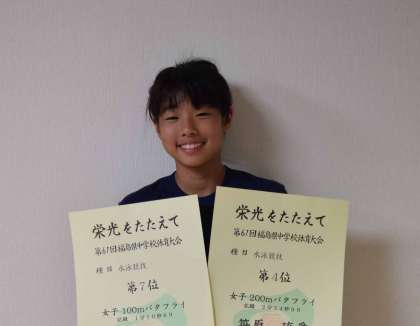 栄光をたたえて
第67回福島県中学校体育大会
種目 水泳競技
第7位
女子100mバタフライ
栄光をたたえて
第67回福島県中学校体育大会
種目 水泳競技
第4位
女子200mバタフライ